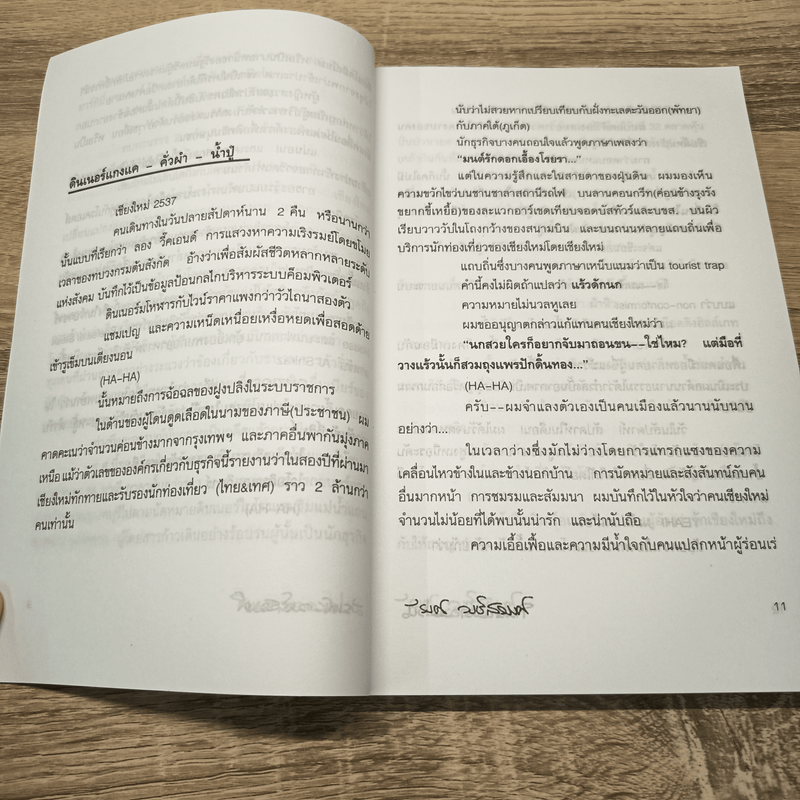 ดินเนอร์แกงแค – คั่วผำ – น้ำปู๋
เชียงใหม่ 2537
คนเดินทางในวันปลายสัปดาห์นาน 2 คืน หรือนานกว่า
นั้นแบบที่เรียกว่า ลอง วี้คเอนด์ การแสวงหาความเริงรมย์โดยขโมย
เวลาของทบวงกรมต้นสังกัด อ้างว่าเพื่อสัมผัสชีวิตหลากหลายระดับ
แห่งสังคม บันทึกไว้เป็นข้อมูลป้อนกลไกบริหารระบบคือมพิวเตอร์
ดินเนอร์มโหฬารกับไวน์ราคาแพงกว่าวัวไถนาสองตัว
แชมเปญ และความเหน็ดเหนื่อยเหงื่อหยดเพื่อสอดด้าย
เข้ารูเข็มบนเตียงนอน
(HA-HA)
นั้นหมายถึงการฉ้อฉลของฝูงปลิงในระบบราชการ
ในด้านของผู้โดนดูดเลือดในนามของภาษี(ประชาชน) ผม
คาดคะเนว่าจำนวนค่อนข้างมากจากรุงเทพฯ และภาคอื่นพากันมุ่งภาค
เหนือ แม้ว่าตัวเลขขององค์กรเกี่ยวกับธุรกิจนี้รายงานว่าในสองปีที่ผ่านมา
เชียงใหม่ทักทายและรับรองนักท่องเที่ยว (ไทย&เทศ) ราว 2 ล้านกว่า
คนเท่านั้น
นับว่าไม่สวยหากเปรียบเทียบกับฝั่งทะเลตะวันออก(พัทยา)
กับภาคใต้(ภูเก็ต)
นักธุรกิจบางคนถอนใจแล้วพูดภาษาเพลงว่า
“มนต์รักดอกเอื้องโรยรา...”
แต่ในความรู้สึกและในสายตาของฝุ่นดิน ผมมองเห็น
ความขวักไขว่บนชานชาลาสถานีรถไฟ บนลานคอนกรีท(ค่อนข้างรุงรัง
ขยากขี้เหยื้อ)ของละแวกอาร์เขดเทียบจอดบัสทัวร์และบขส. บนผิว
เรียบวาววับในโถงกว้างของสนามบิน และบนถนนหลายแถบถิ่นเพื่อ
บริการนักท่องเที่ยวของเชียงใหม่โดยเชียงใหม่
แถบถิ่นซึ่งบางคนพูดภาษาเหน็บแนมว่าเป็น tourist trap
คำนี้คงไม่ผิดถ้าแปลว่า แร้วดักนก
ความหมายไม่นวลหูเลย
ผมขออนุญาตกล่าวแก้แทนคนเชียงใหม่ว่า
“นกสวยใครก็อยากจับมาถอนขน--ใช่ไหม? แต่มือที่
วางแร้วนั้นก็สวมถุงแพรปักดิ้นทอง...”
(HA-HA)
ครับ--ผมจำแลงตัวเองเป็นคนเมืองแล้วนานนับนาน
อย่างว่า...
ในเวลาว่างซึ่งมักไม่ว่างโดยการแทรกแซงของความ
เคลื่อนไหวข้างในและข้างนอกบ้าน การนัดหมายและสังสันทน์กับคน
อื่นมากหน้า การชมรมและสัมมนา ผมบันทึกไว้ในหัวใจว่าคนเชียงใหม่
จำนวนไม่น้อยที่ได้พบนั้นน่ารัก และน่านับถือ
ความเอื้อเฟื้อและความมีน้ำใจกับคนแปลกหน้าผู้ร่อนเร่
11